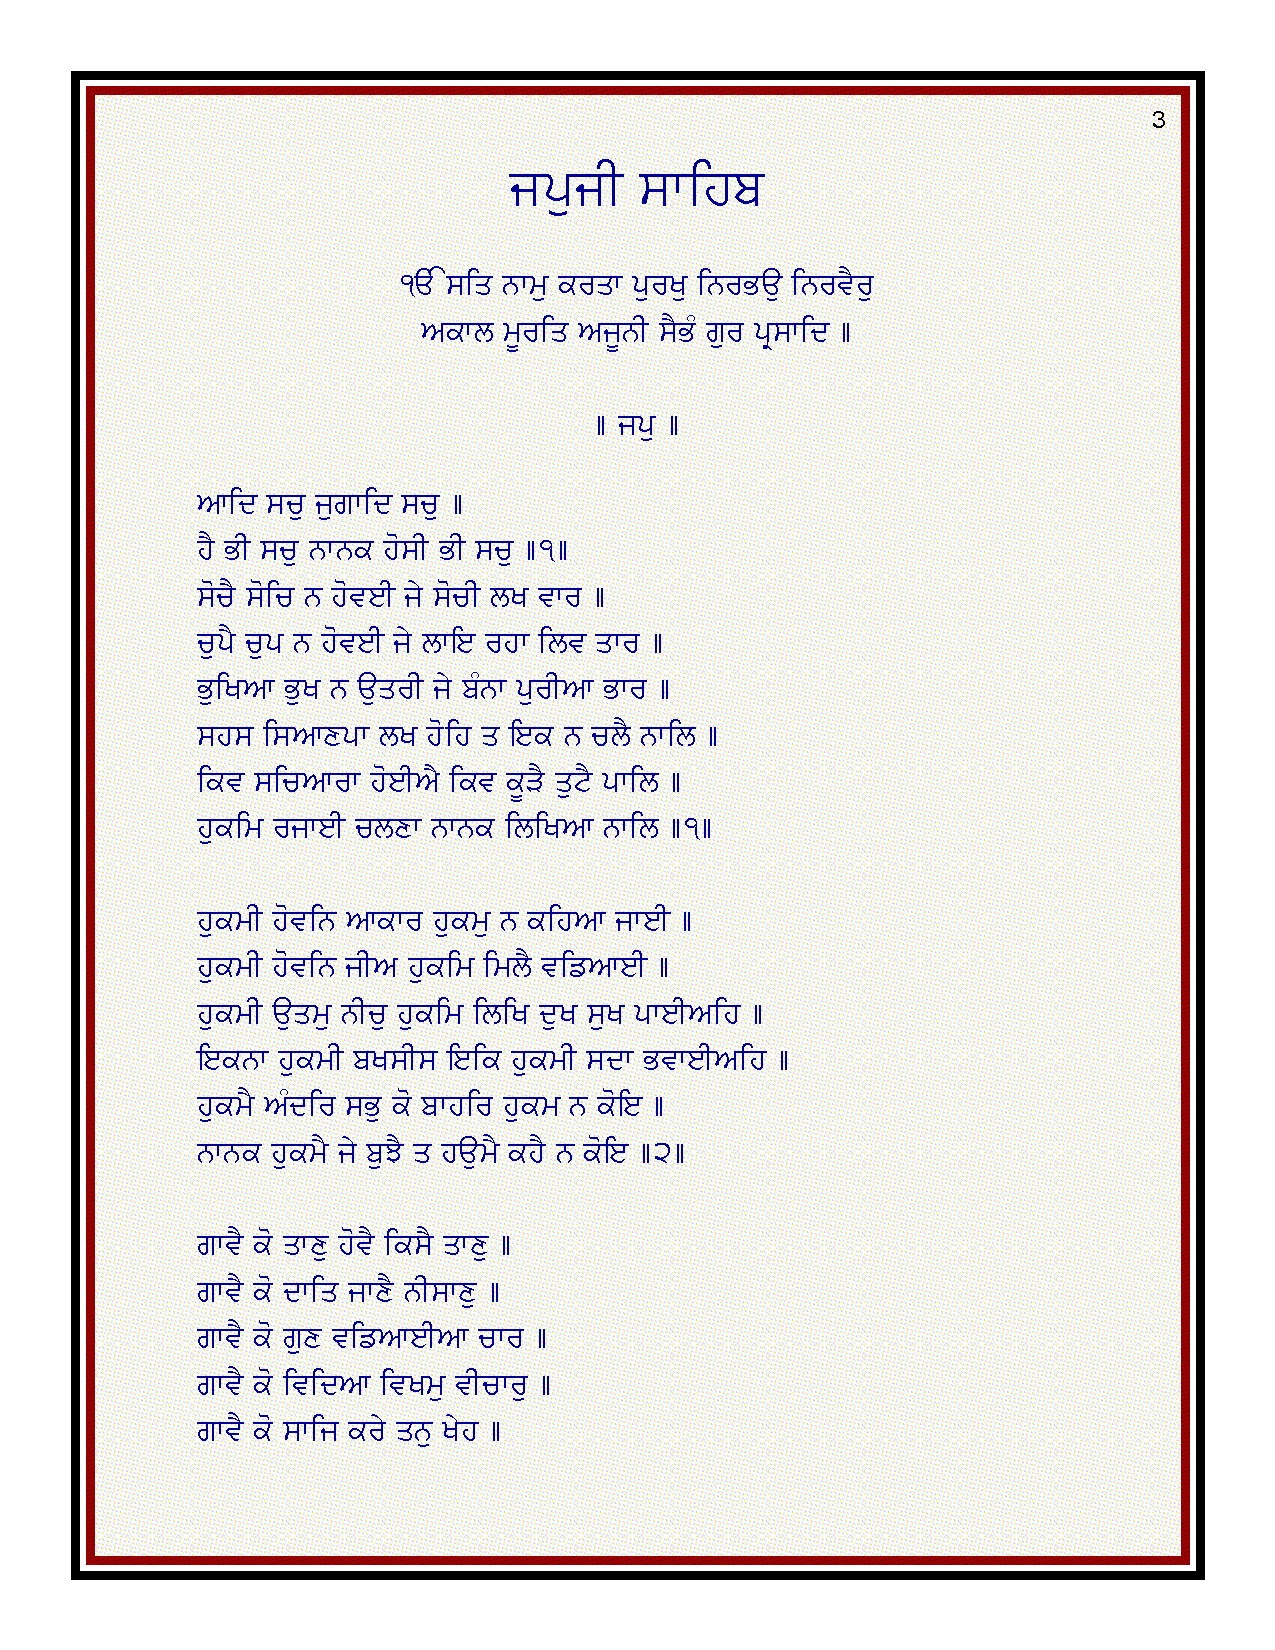 3
ਜਪੁਜੀ ਸਾਹਿਬ
ੴ ਸਤਿ ਨਾਮੁ ਕਰਤਾ ਪੁਰਖੁ ਨਿਰਭਉ ਨਿਰਵੈਰੁ
ਅਕਾਲ ਮੂਰਤਿ ਅਜੂਨੀ ਸੈਭੰ ਗੁਰ ਪ੍ਰਸਾਦਿ ॥
॥ ਜਪੁ ॥
ਆਦਿ ਸਚੁ ਜੁਗਾਦਿ ਸਚੁ ॥
ਹੈ ਭੀ ਸਚੁ ਨਾਨਕ ਹੋਸੀ ਭੀ ਸਚੁ ॥੧॥
ਸੋਚੈ ਸੋਚਿ ਨ ਹੋਵਈ ਜੇ ਸੋਚੀ ਲਖ ਵਾਰ ॥
ਚੁਪੈ ਚੁਪ ਨ ਹੋਵਈ ਜੇ ਲਾਇ ਰਹਾ ਲਿਵ ਤਾਰ ॥
ਭੁਖਿਆ ਭੁਖ ਨ ਉਤਰੀ ਜੇ ਬੰਨਾ ਪੁਰੀਆ ਭਾਰ ॥
ਸਹਸ ਸਿਆਣਪਾ ਲਖ ਹੋਹਿ ਤ ਇਕ ਨ ਚਲੈ ਨਾਲਿ ॥
ਕਿਵ ਸਚਿਆਰਾ ਹੋਈਐ ਕਿਵ ਕੂੜੈ ਤੁਟੈ ਪਾਲਿ ॥
ਹੁਕਮਿ ਰਜਾਈ ਚਲਣਾ ਨਾਨਕ ਲਿਖਿਆ ਨਾਲਿ ॥੧॥
ਹੁਕਮੀ ਹੋਵਨਿ ਆਕਾਰ ਹੁਕਮੁ ਨ ਕਹਿਆ ਜਾਈ ॥
ਹੁਕਮੀ ਹੋਵਨਿ ਜੀਅ ਹੁਕਮਿ ਮਿਲੈ ਵਡਿਆਈ ॥
ਹੁਕਮੀ ਉਤਮੁ ਨੀਚੁ ਹੁਕਮਿ ਲਿਖਿ ਦੁਖ ਸੁਖ ਪਾਈਅਹਿ ॥
ਇਕਨਾ ਹੁਕਮੀ ਬਖਸੀਸ ਇਕਿ ਹੁਕਮੀ ਸਦਾ ਭਵਾਈਅਹਿ ॥
ਹੁਕਮੈ ਅੰਦਰਿ ਸਭੁ ਕੋ ਬਾਹਰਿ ਹੁਕਮ ਨ ਕੋਇ ॥
ਨਾਨਕ ਹੁਕਮੈ ਜੇ ਬੁਝੈ ਤ ਹਉਮੈ ਕਹੈ ਨ ਕੋਇ ॥੨॥
ਗਾਵੈ ਕੋ ਤਾਣੁ ਹੋਵੈ ਕਿਸੈ ਤਾਣੁ ॥
ਗਾਵੈ ਕੋ ਦਾਤਿ ਜਾਣੈ ਨੀਸਾਣੁ ॥
ਗਾਵੈ ਕੋ ਗੁਣ ਵਡਿਆਈਆ ਚਾਰ ॥
ਗਾਵੈ ਕੋ ਵਿਦਿਆ ਵਿਖਮੁ ਵੀਚਾਰੁ ॥
ਗਾਵੈ ਕੋ ਸਾਜਿ ਕਰੇ ਤਨੁ ਖੇਹ ॥